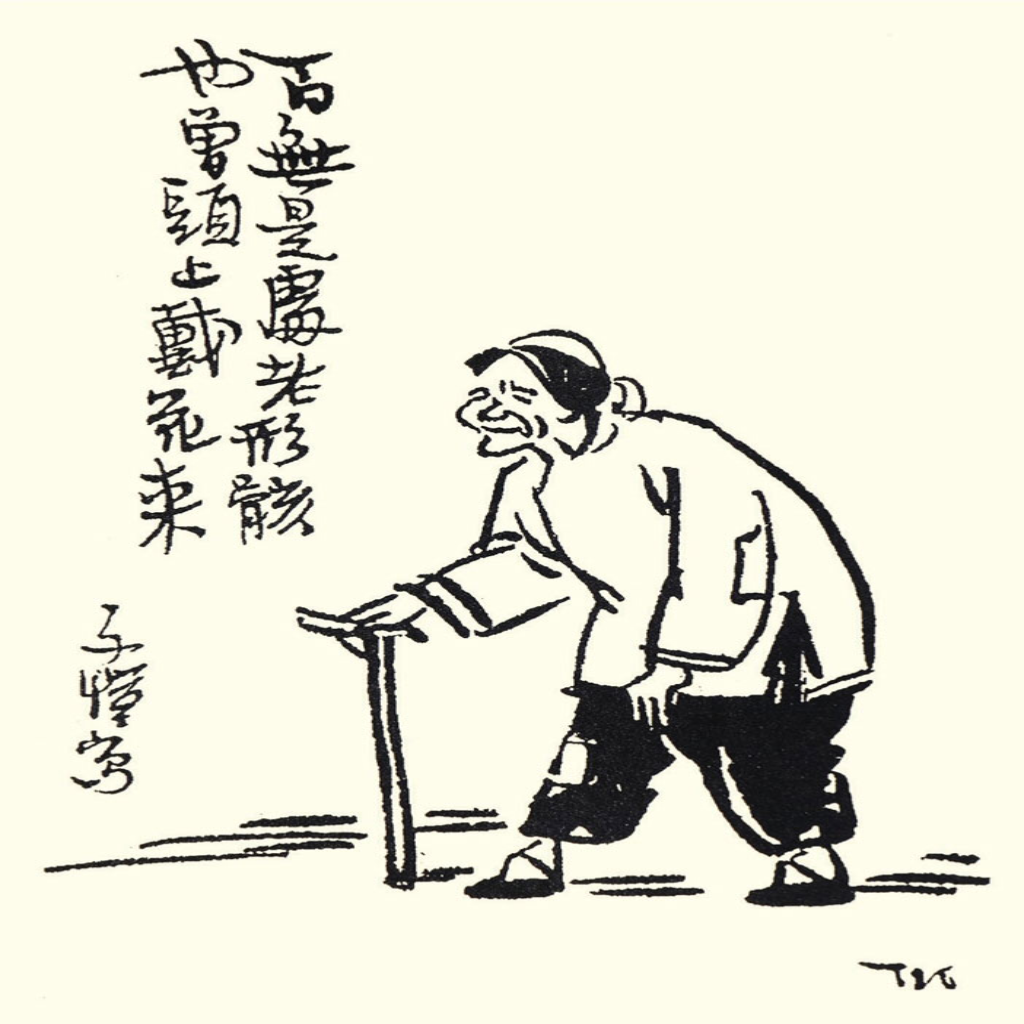 百無是處老形骸
也曾頭上戴花來
子愷寫
TK